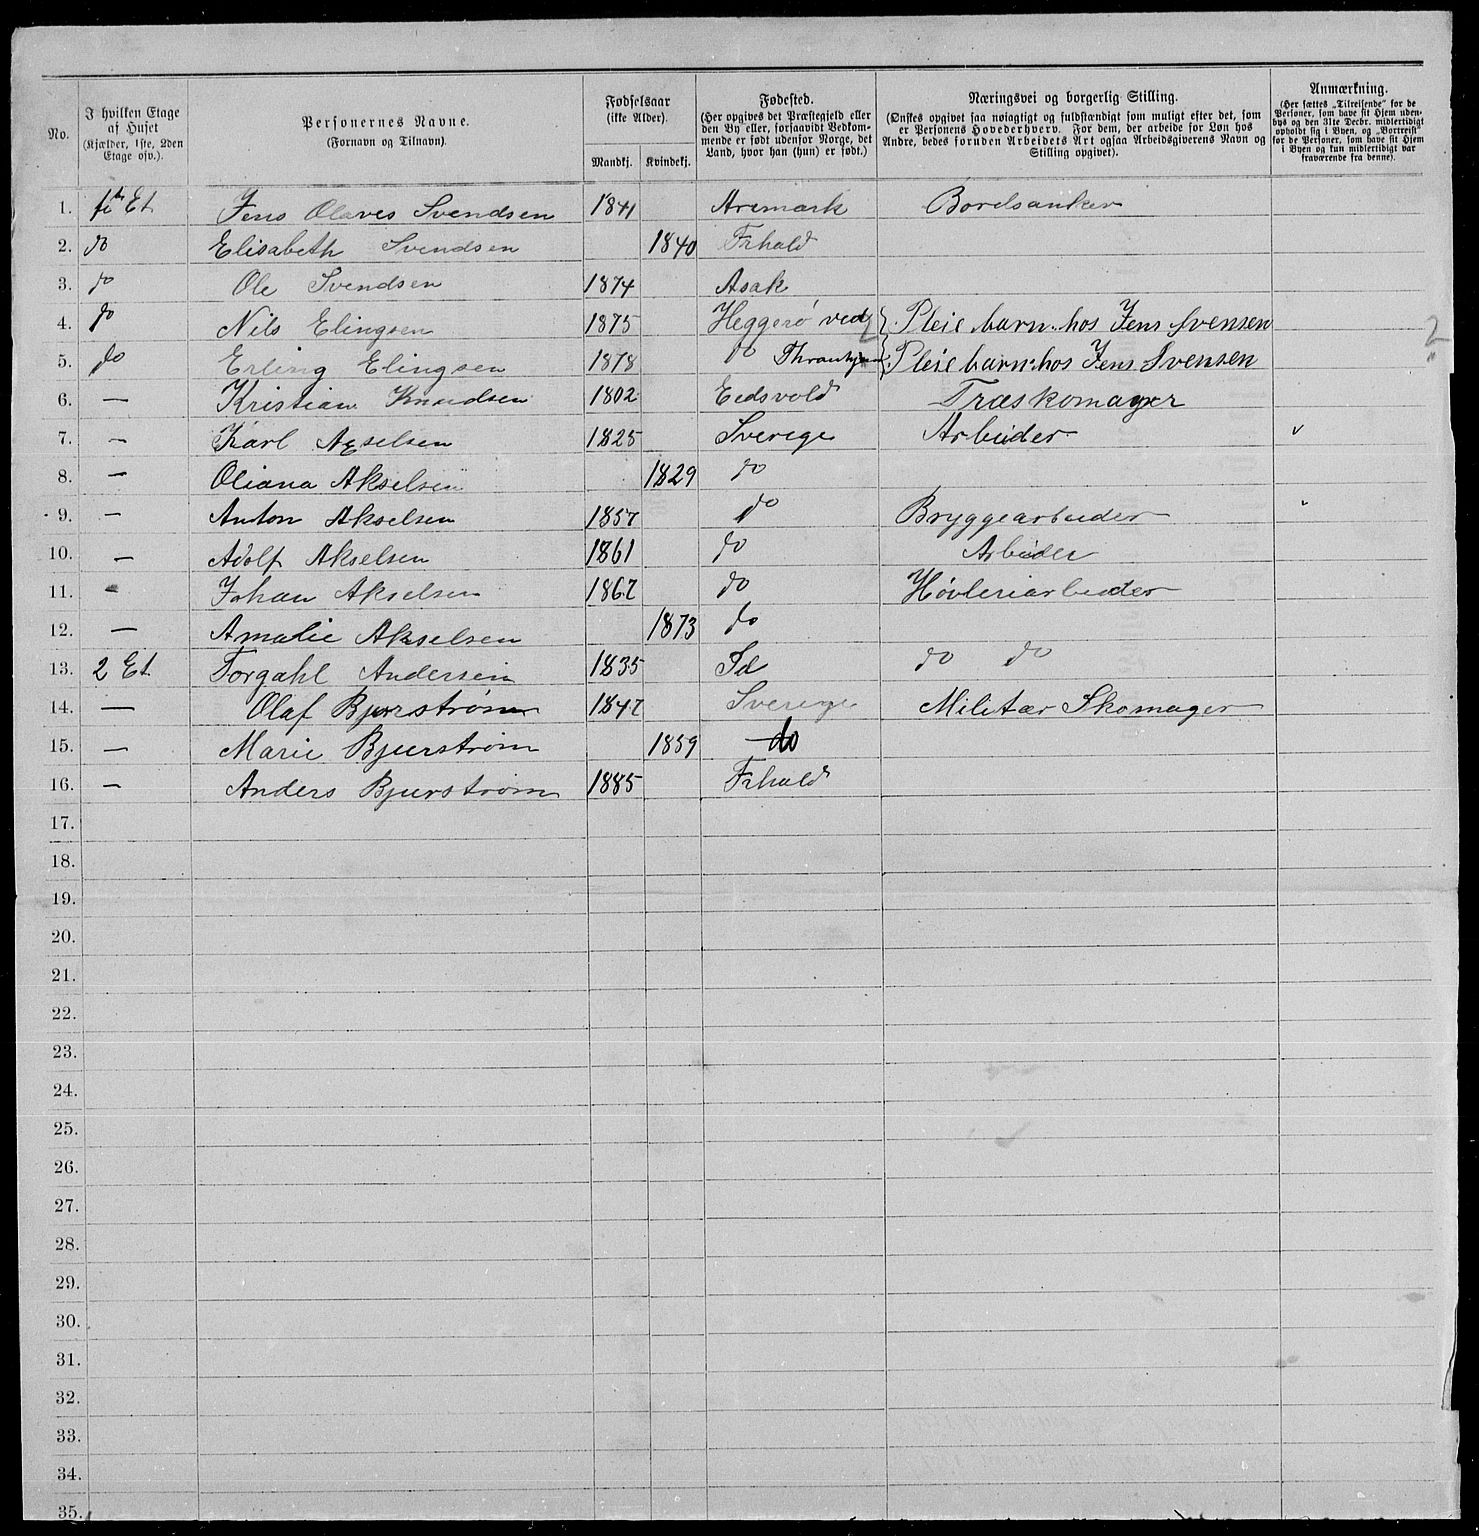 No. | I hvilken Etage af Huset (Kjælder, 1ste, 2den Etage osv.). | Personernes Navne. (Fornavn og Tilnavn). | Fødselsaar (ikke Alder). Mandkj. | Kvindekj. | Fødested. (Her opgives det Præstegjeld eller den By eller, forsaavidt Vedkommende er født udenfor Norge, det Land, hvor han (hun) er født.) | Næringsvei og borgerlig Stilling. (Ønskes opgivet saa nøiagtigt og fuldstændigt som muligt efter det, som er Personens Hovederhverv. For dem, der arbeide for Løn hos Andre, bedes foruden Arbeidets Art ogsaa Arbeidsgiverens Navn og Stilling opgivet). | Anmærkning. (Her sættes „Tilreisende“ for de Personer, som have sit Hjem udenbys og den 31te Decbr. midlertidigt opholdt sig i Byen, og „Bortreist“ for de Personer, som have sit Hjem i Byen og kun midlertidigt var fraværende fra denne).
1. | Et. | Jens Olaves Svendsen | 1841 | | Aremark | Bordsanker
2. | do | Elisabeth Svendsen | | 1840 | Frhald
3. | do | Ole Svendsen | 1874 | | Asak
4. | do | Nils Elingsen | 1875 | | Heggerø ved | Pleiebarn hos Jens Svensen | 2
5. | do | Erling Elingsen | 1878 | | do Thronhjem | Pleiebarn hos Jens Svensen | "
6. | — | Kristian Knudsen | 1802 | | Eedsvold | Træskomager
7. | — | Karl Akselsen | 1825 | | Sverige | Arbeider
8. | — | Oliana Akselsen | | 1829 | do
9. | — | Anton Akselsen | 1857 | | do | Bryggearbeider
10. | — | Adolf Akselsen | 1861 | | do | Arbeider
11. | — | Johan Akselsen | 1867 | | do | Høvleriarbeider
12. | — | Amalie Akselsen | | 1873 | do
13. | 2 Et. | Torgahl Andersen | 1835 | | Id | do do
14. | — | Olaf Bjurstrøm | 1847 | | Sverige | Militær Skomager
15. | — | Marie Bjurstrøm | | 1859 | do
16. | — | Anders Bjurstrøm | 1885 | | Frhald
17.
18.
19.
20.
21.
22.
23.
24.
25.
26.
27.
28.
29.
30.
31.
32.
33.
34.
35.